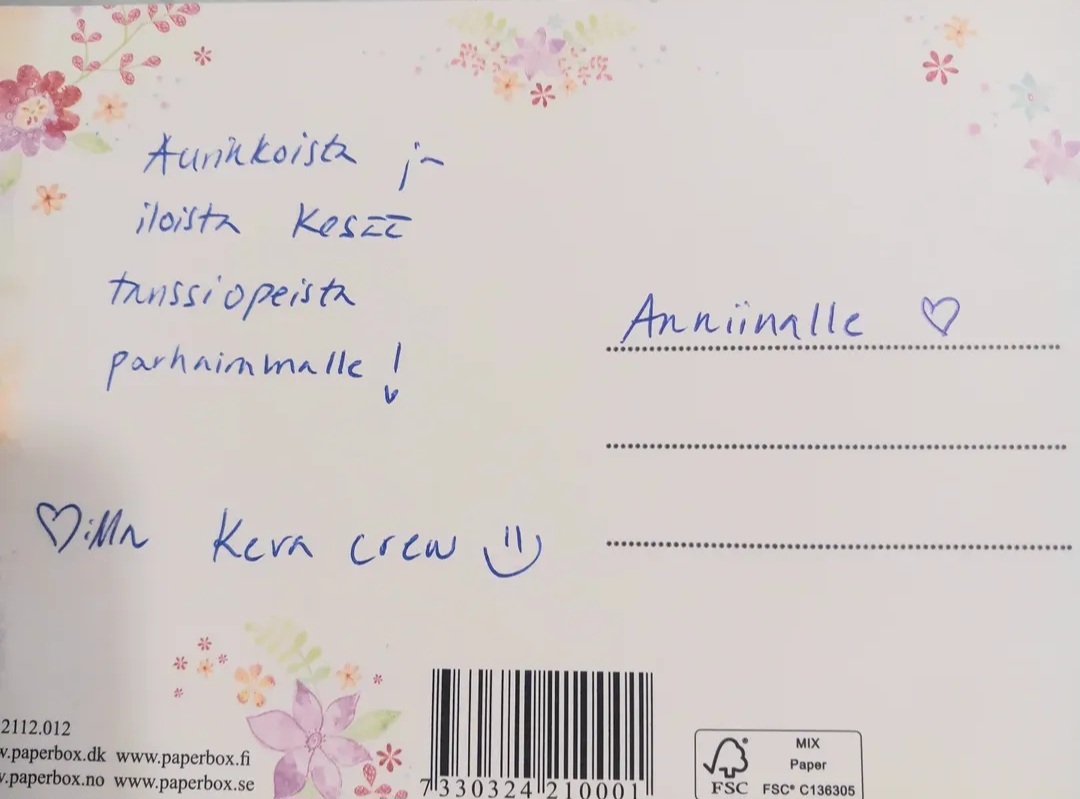 Aurinkoista ja
iloista kesää
tanssiopeista
parhaimmalle!
Anniinalle ♡
♡:illa Kera crew
2112.012
w.paperbox.dk www.paperbox.fi
v.paperbox.no www.paperbox.se
7 330324 210001
MIX
Paper
FSC
FSC® C136305